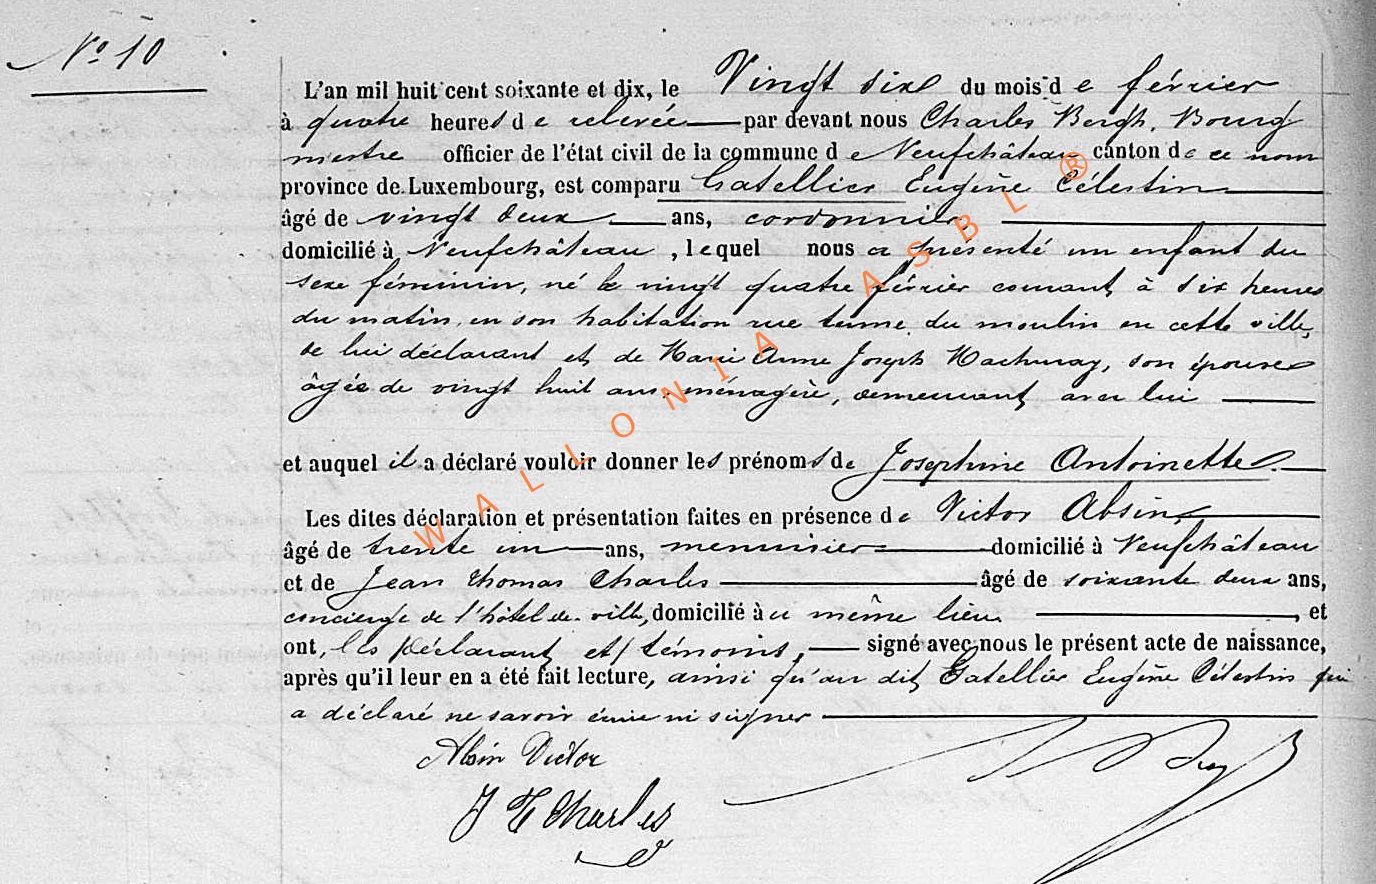 No 10
L'an mil huit cent soixante et dix, le Vingt six du mois de février
à quatre heures de relevée par devant nous Charles Bergh, Bourg
mestre officier de l'état civil de la commune de Neufchâteau canton de ce nom
province de Luxembourg, est comparu Gatellier Eugène Célestin
âgé de vingt deux ans, cordonnier,
domicilié à Neufchâteau, lequel nous a présenté un enfant du
sexe féminin, né le vingt quatre février courant, à six heures
du matin, en son habitation rue terme du moulin en cette ville,
de lui déclarant et de Marie Anne Joseph Machuray, son épouse
âgée de vingt huit ans, ménagère, demeurant avec lui
et auquel il a déclaré vouloir donner les prénoms de Josephine Antoinette.
Les dites déclaration et présentation faites en présence de Victor Absin,
âgé de trente un ans, menuisier domicilié à Neufchâteau
et de Jean Thomas Charles âgé de soixante deux ans,
concierge de l'hôtel de ville, domicilié à u même lieu, et
ont, les déclarant et témoins, signé avec nous le présent acte de naissance,
après qu'il leur en a été fait lecture, ainsi qu'au dit Gatellier Eugène Célestin qui
a déclaré ne savoir écrire ni signer
Absin Victor
J T Charles
WALLONIA ASBL ®